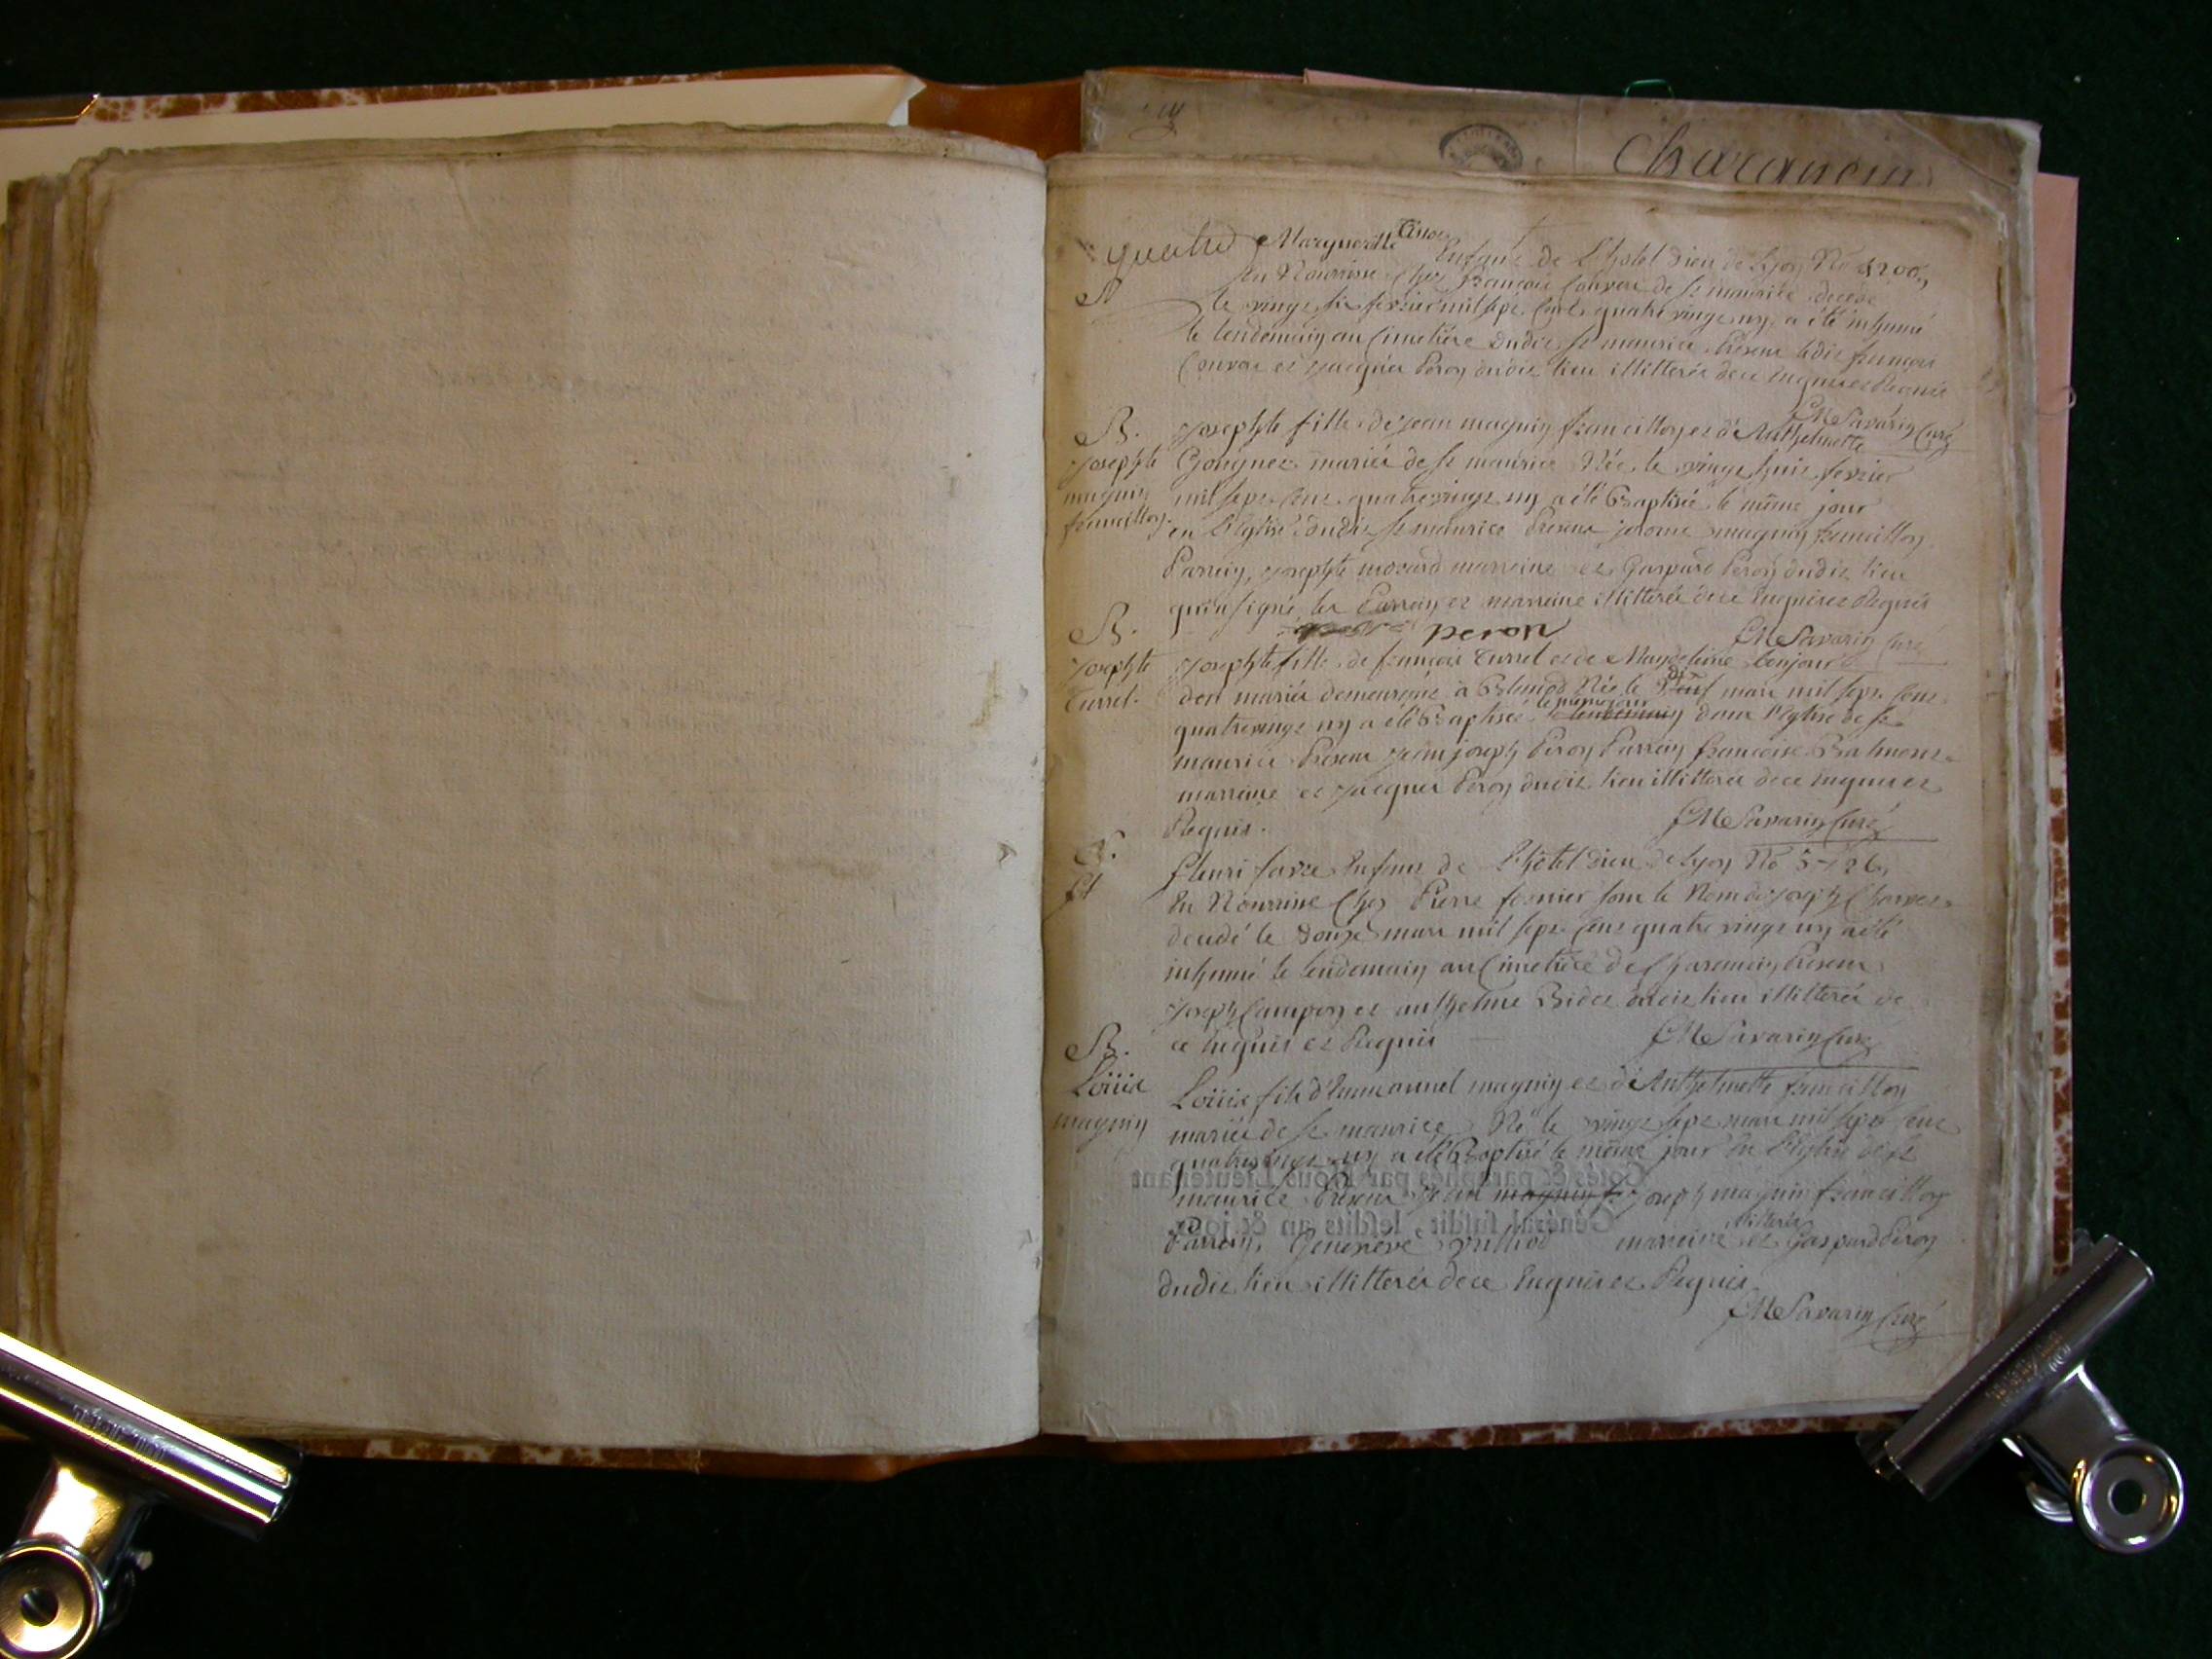 Charancin
quatre Margueritte Enfant de L'hotel dieu de Lyon No
en Nourrisse Chez françois Convou de st maurice decede
le vingt six fevrier mil sept Cent quatre vingt un a été inhumé
le lendemain au Cimetière dudit st maurice Présent ledit françois
Convou et jacques Peron dudit lieu illitterés de ce Enquis et Requis
f M Savarin Curé
B.
josephte
magnin
francillon.
josephte fille de jean magnin francillon et d'Anthelmette
Goignet mariés de st maurice Née le vingt huit fevrier
mil sept Cent quatrevingt un a été Baptisée le même jour
en L'Eglise dudit st maurice Présent jerome magnin francillon
Parrain, josephte mozard marraine et Gaspard Peron dudit lieu
qui a signé les Parrain et marraine illitterés de ce Enquis et Requis
peron
f M Savarin Curé
B.
josephte
Turrel.
josephte fille de françois Turrel et de Magdelaine bonjour
d'en mariés demeurant à Belmod Née le Neuf mars mil sept Cent
quatrevingt un a été Baptisée le même jour lendemain dans l'Eglise de st
maurice Présent jean joseph Peron Parrain françoise Balmont
marraine et jacques Peron dudit lieu illitterés de ce Enquis et
Requis.
f M Savarin Curé
fleuri favre Enfant de L'hotel dieu de Lyon No
En Nourrisse Chez Pierre fornier sous le Nom de joseph Charvet
decedé le douze mars mil sept Cent quatre vingt un a été
inhumé le lendemain au Cimetière de Charancin Présent
joseph Campon et anthelme Bidet dudit lieu illitterés de
ce Enquis et Requis
f M Savarin Curé
B.
Loüis
magnin
Loüis fils d'Emmannuel magnin et d'Anthelmette francillon
mariés de st maurice Né le vingt sept mars mil sept Cent
quatrevingt un a été Baptisé le même jour en L'Eglise de st
maurice Présent jean magnin f. joseph magnin francillon
Parrain, Geneviève vulliod illitterés marraine et Gaspard Peron
dudit lieu illitterés de ce Enquis et Requis.
f M Savarin Curé
Coté & paraphés par Nous Lieutenant
Général susdit, lesdits an & jour